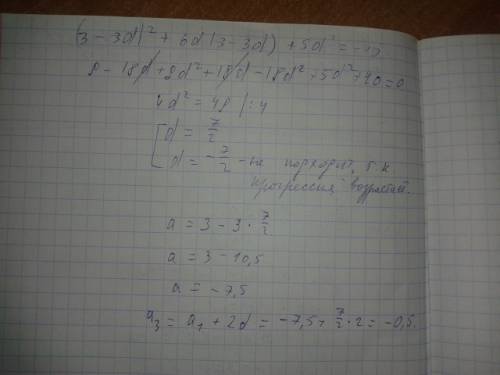 (3 - 3d)² + 6d(3 - 3d) + 5d² = -40
9 - 18d + 9d² + 18d - 18d² + 5d² + 40 = 0
4d² = 49 | : 4
d = 7/2
d = -7/2 - не подходит, т.к
прогрессия возрастает.
a = 3 - 3 · 7/2
a = 3 - 10,5
a = -7,5
a₃ = a₁ + 2d = -7,5 + 7/2 · 2 = -0,5.